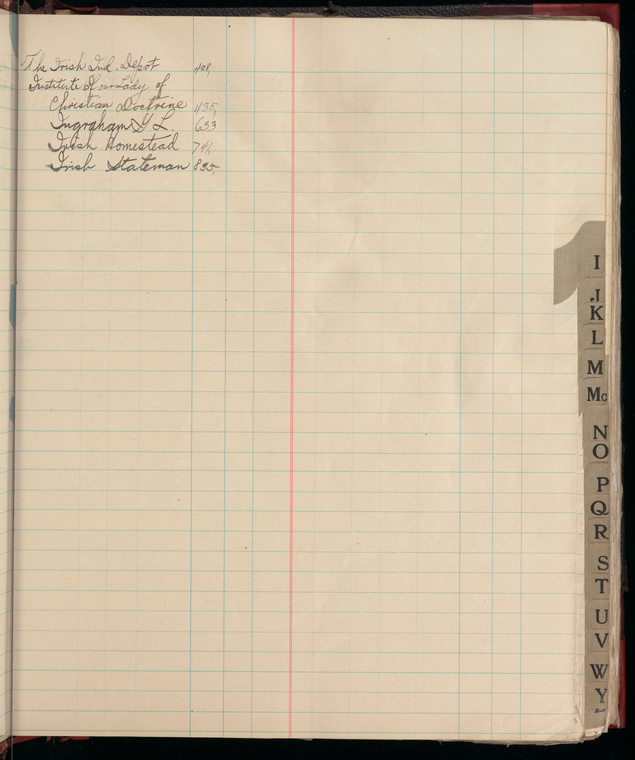 The Irish Ind. Depot 428,
Institute of our Lady of
Christian Doctrine 435,
Ingraham G L. 633
Irish Homestead 748,
Irish Stateman 835,
I
J
K
L
M
Mc
N
O
P
Q
R
S
T
U
V
W
Y